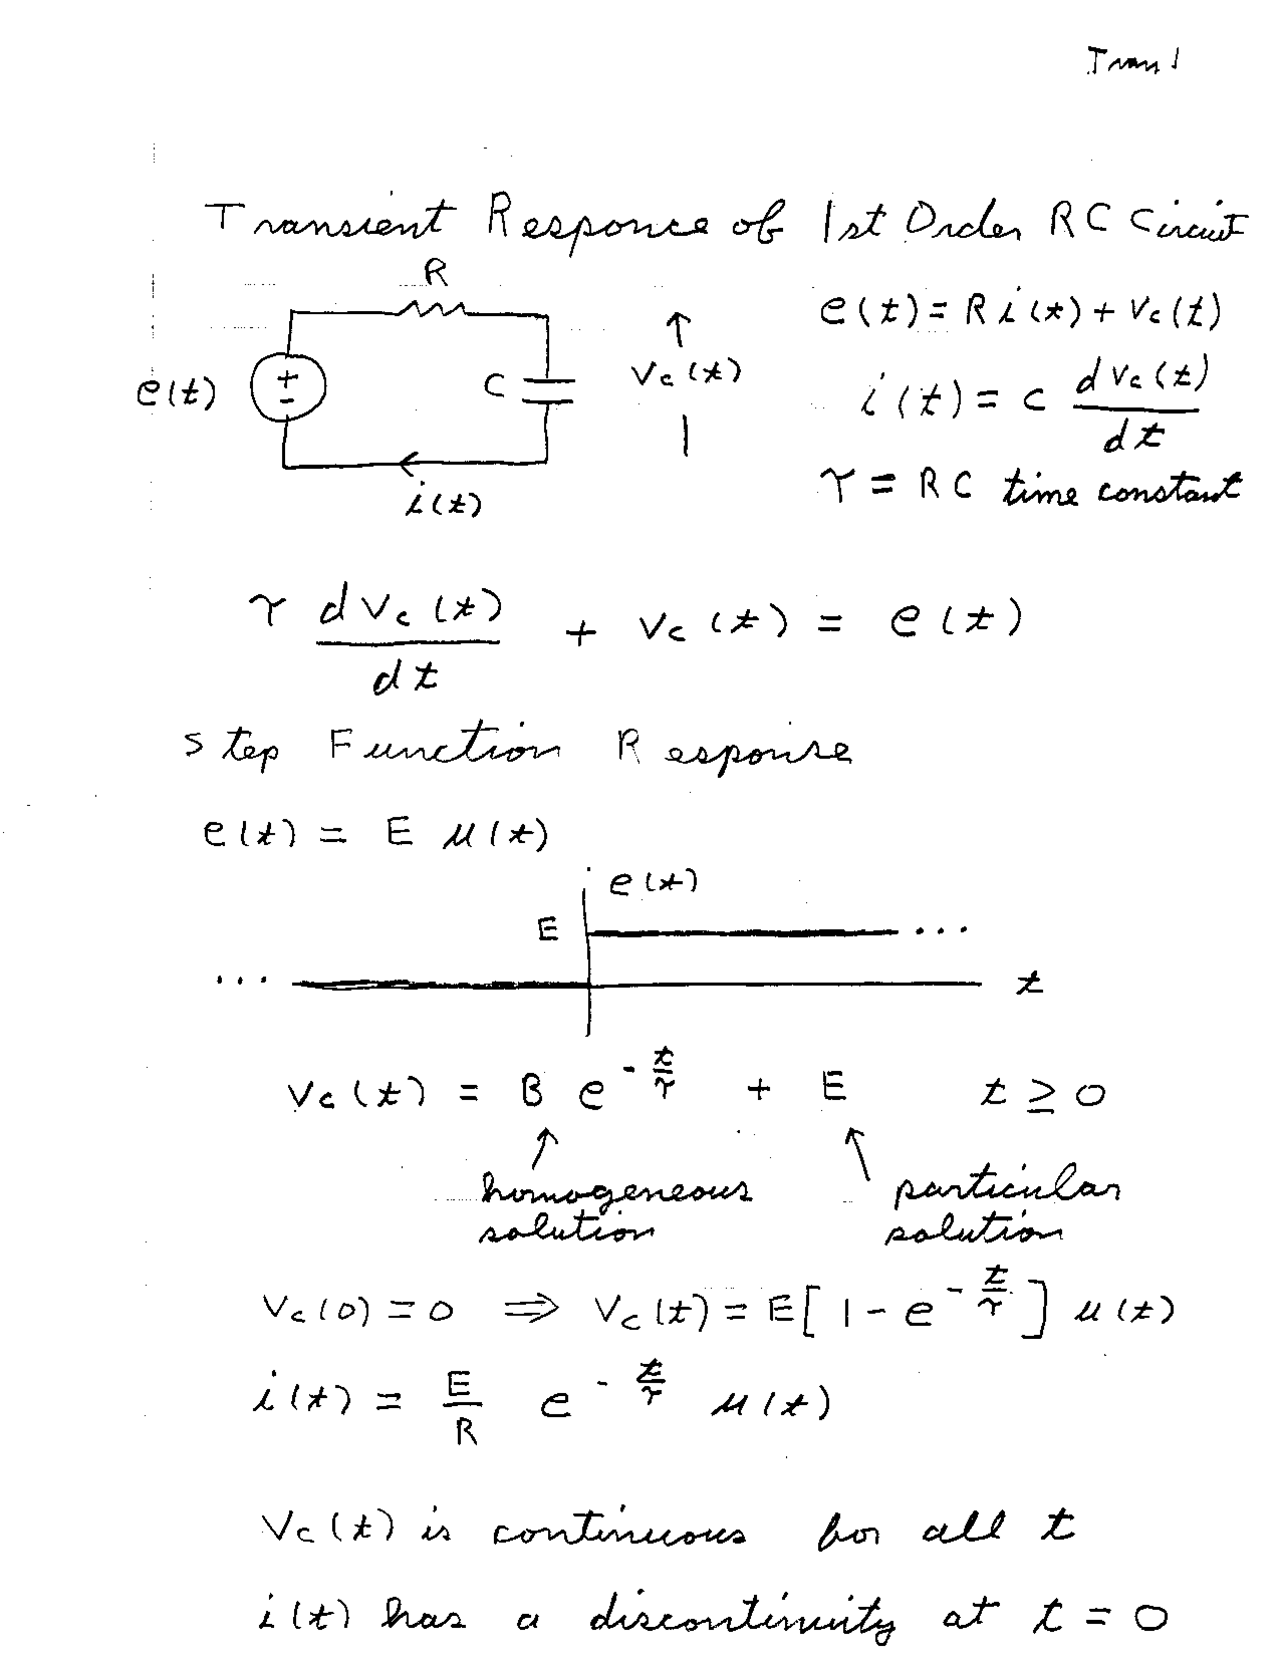 Tran 1
Transient Responce of 1st Order RC Circuit
R
e(t) = R i(t) + Vc(t)
e(t) + - C Vc(t)
i(t) = C dVc(t)/dt
i(t)
τ = RC time constant
τ dVc(t)/dt + Vc(t) = e(t)
Step Function Response
e(t) = E u(t)
e(t)
E ...
... t
Vc(t) = B e^(-t/τ) + E t ≥ 0
homogeneous particular
solution solution
Vc(0) = 0 ⇒ Vc(t) = E[1 - e^(-t/τ)] u(t)
i(t) = E/R e^(-t/τ) u(t)
Vc(t) is continuous for all t
i(t) has a discontinuity at t = 0